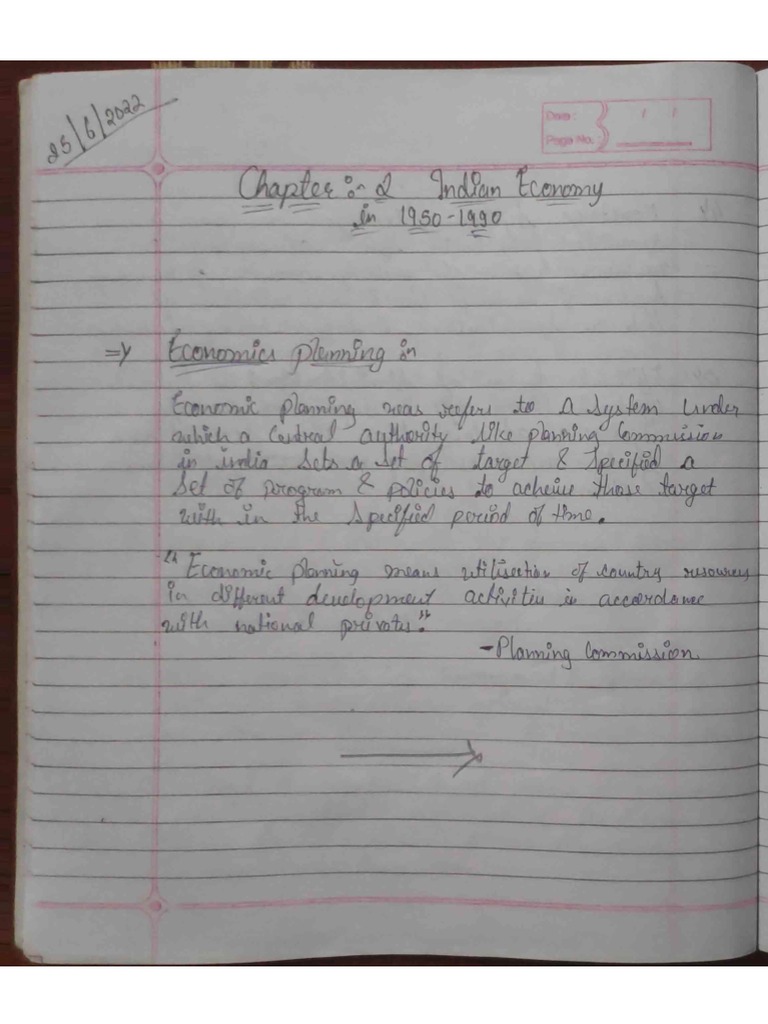 25/6/2022
Date: / /
Page No.:
Chapter :- 2 Indian Economy
in 1950-1990
=> Economics planning :-
Economic planning refers to a system under
which a Central authority like planning Commission
in india sets a set of target & specified a
set of program & policies to acheive those target
with in the specified period of time.
"Economic planning means utilisection of country resources
in different development activities in accordance
with national privaty."
-Planning Commission